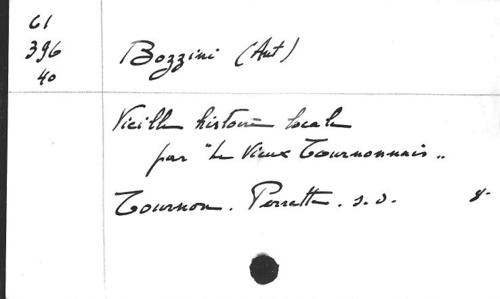 61
396
40
Bozzini (Ant)
Vieille histoire locale
par "Le Vieux Tournonnais"
Tournon. Perrette. s.d. 8°